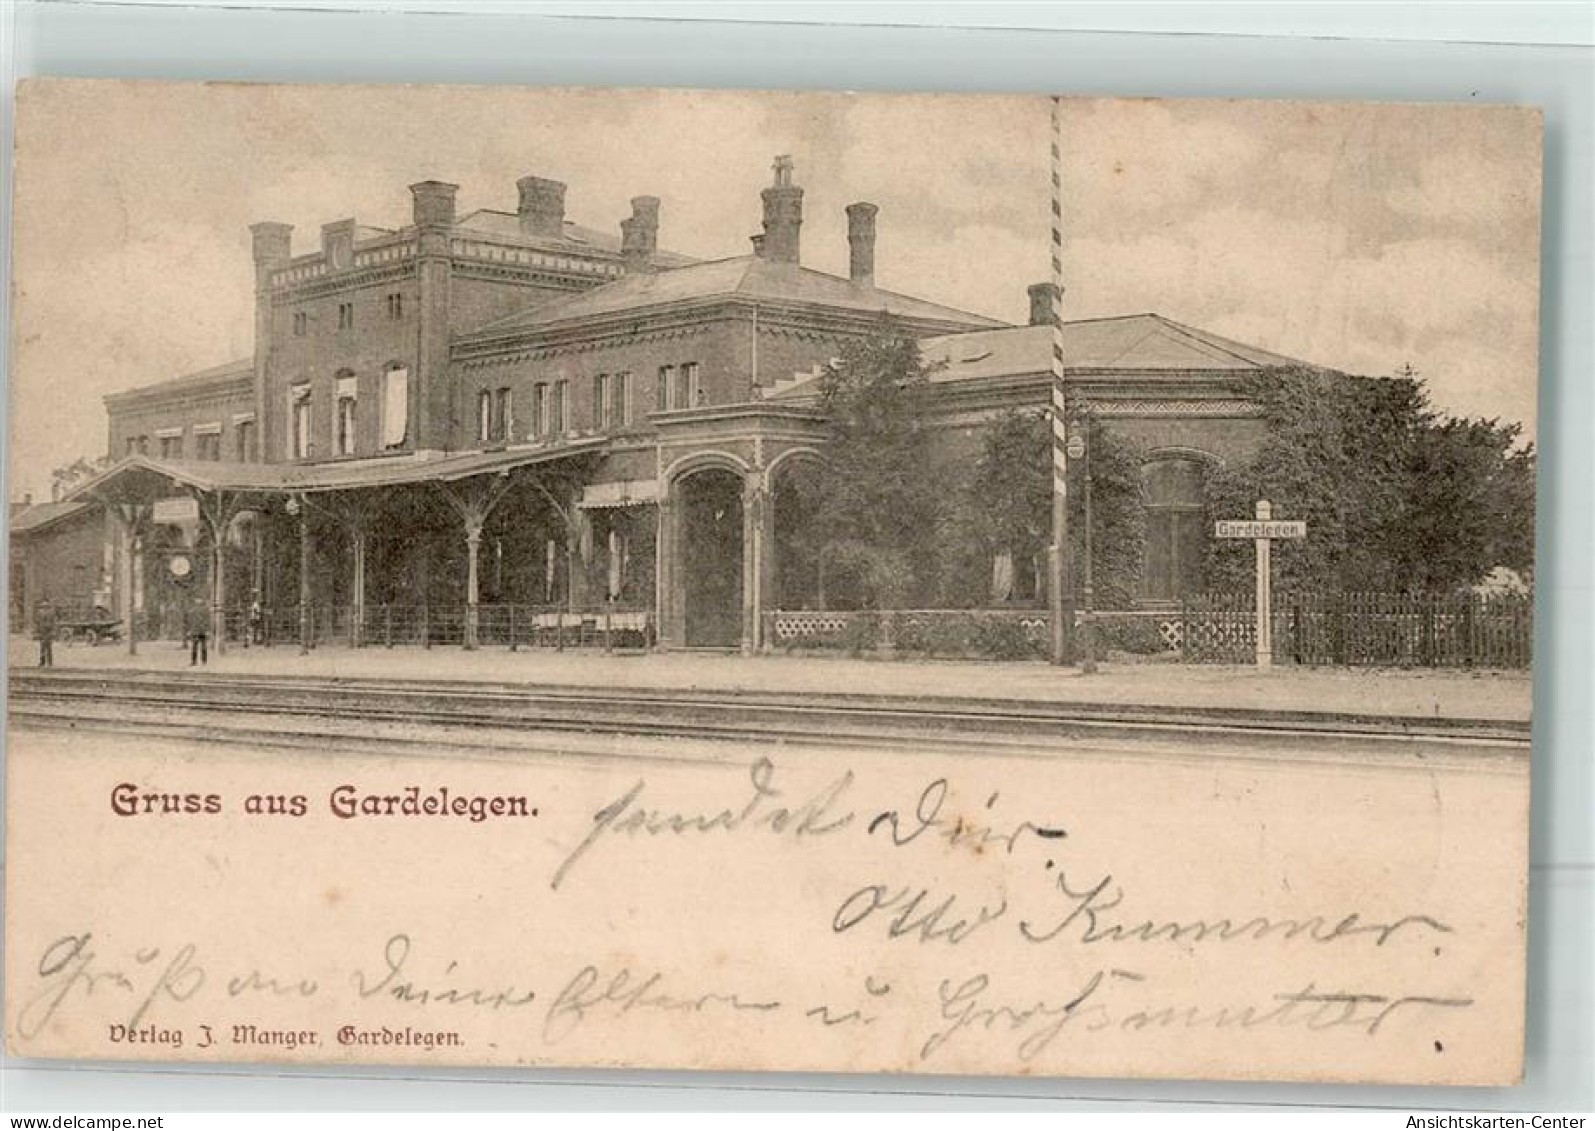 Gardelegen.
Gruss aus Gardelegen.
sendet Dir
Otto Kummer.
Gruß an Deine Eltern u Großmutter
Verlag J. Manger, Gardelegen.
www.delcampe.net
Ansichtskarten-Center